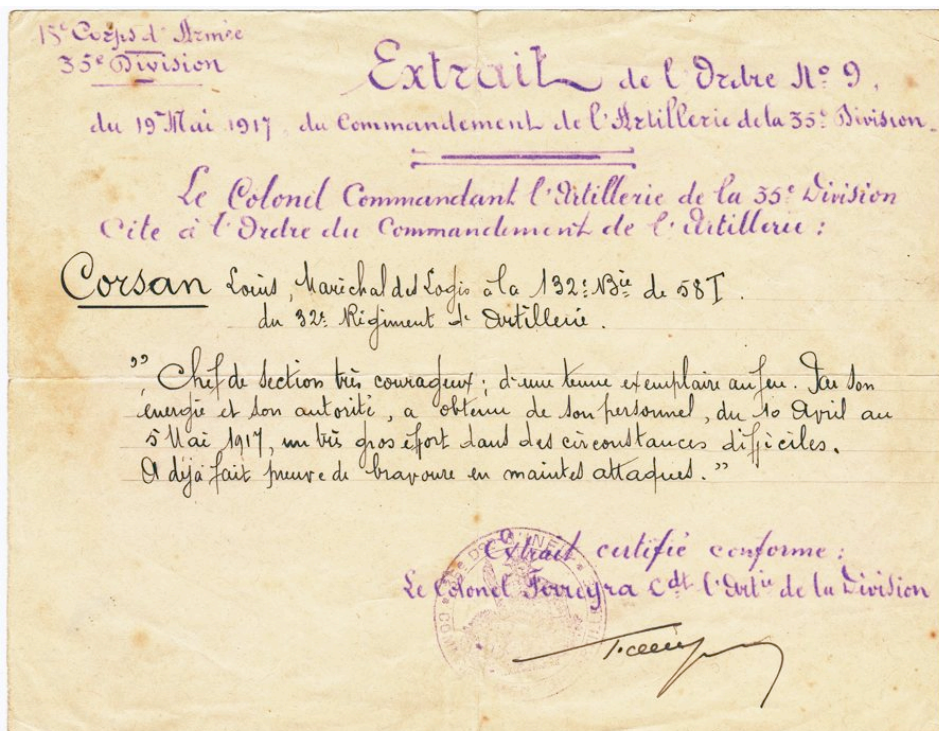 18e Corps d'Armée
35e Division
Extrait de l'Ordre No 9,
du 19 Mai 1917, du Commandement de l'Artillerie de la 35e Division.
Le Colonel Commandant l'Artillerie de la 35e Division
Cite à l'Ordre du Commandement de l'Artillerie :
Corsan Louis, Maréchal des Logis à la 132e Bie de 58 T.
du 32e Régiment d'Artillerie.
" Chef de section très courageux ; d'une tenue exemplaire au feu. Par son
énergie et son autorité, a obtenu de son personnel, du 10 Avril au
5 Mai 1917, un très gros effort dans des circonstances difficiles.
A déjà fait preuve de bravoure en maintes attaques. "
Extrait certifié conforme :
Le Colonel Ferreyra Cdt l'Artie de la Division